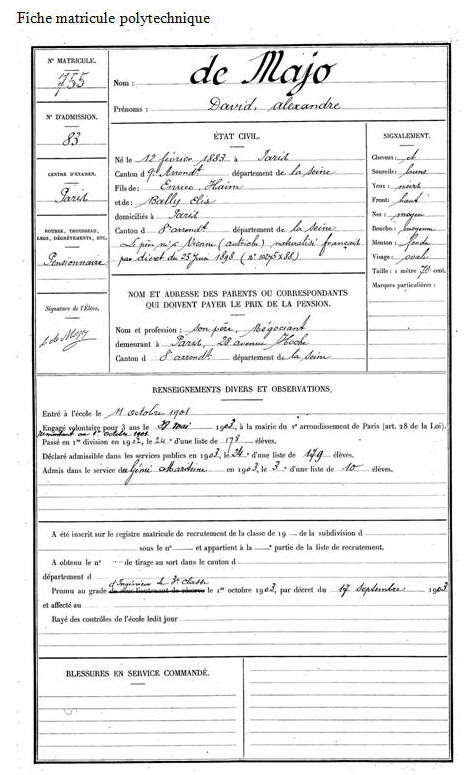 Fiche matricule polytechnique
N° MATRICULE.
755
N° D'ADMISSION.
83
CENTRE D'EXAMEN.
Paris
BOURSE, TROUSSEAU,
LEGS, DÉGRÈVEMENTS, ETC.
Pensionnaire
Signature de l'Élève.
Nom : de Majo
Prénoms : David, Alexandre
ÉTAT CIVIL.
Né le 12 février 1883 à Paris
Canton d 9e Arrondt département de la Seine
Fils de : Enrico, Haïm
et de : Bally
domiciliés à Paris
Canton d 8e arrondt département de la Seine
Le père né à Vienne (Autriche) naturalisé français
par décret du 25 juin 1898 (n° 10275X88)
SIGNALEMENT.
Cheveux : et
Sourcils : bruns
Yeux : noirs
Front : haut
Nez : moyen
Bouche : moyenne
Menton : fendu
Visage : ovale
Taille : 1 mètre 70 cent.
Marques particulières :
NOM ET ADRESSE DES PARENTS OU CORRESPONDANTS
QUI DOIVENT PAYER LE PRIX DE LA PENSION.
Nom et profession : son père, Négociant
demeurant à Paris, 28 avenue Hoche
Canton d 8e arrondt département de la Seine
RENSEIGNEMENTS DIVERS ET OBSERVATIONS.
Entré à l'école le 11 octobre 1901
Engagé volontaire pour 3 ans le mai 1903, à la mairie du Ve arrondissement de Paris (art. 28 de la Loi).
remontant au 1er octobre 1901
Passé en 1re division en 1902, le 24e d'une liste de 178 élèves.
Déclaré admissible dans les services publics en 1903, le 24e d'une liste de 179 élèves.
Admis dans le service du Génie Maritime en 1903, le 3e d'une liste de 10 élèves.
A été inscrit sur le registre matricule de recrutement de la classe de 19 — de la subdivision d
sous le n° — et appartient à la — partie de la liste de recrutement.
A obtenu le n° — de tirage au sort dans le canton d
département d
d'Ingénieur de 3e classe
Promu au grade de sous-lieutenant de réserve le 1er octobre 1903, par décret du 17 Septembre 1903
et affecté au
Rayé des contrôles de l'école ledit jour
BLESSURES EN SERVICE COMMANDÉ.